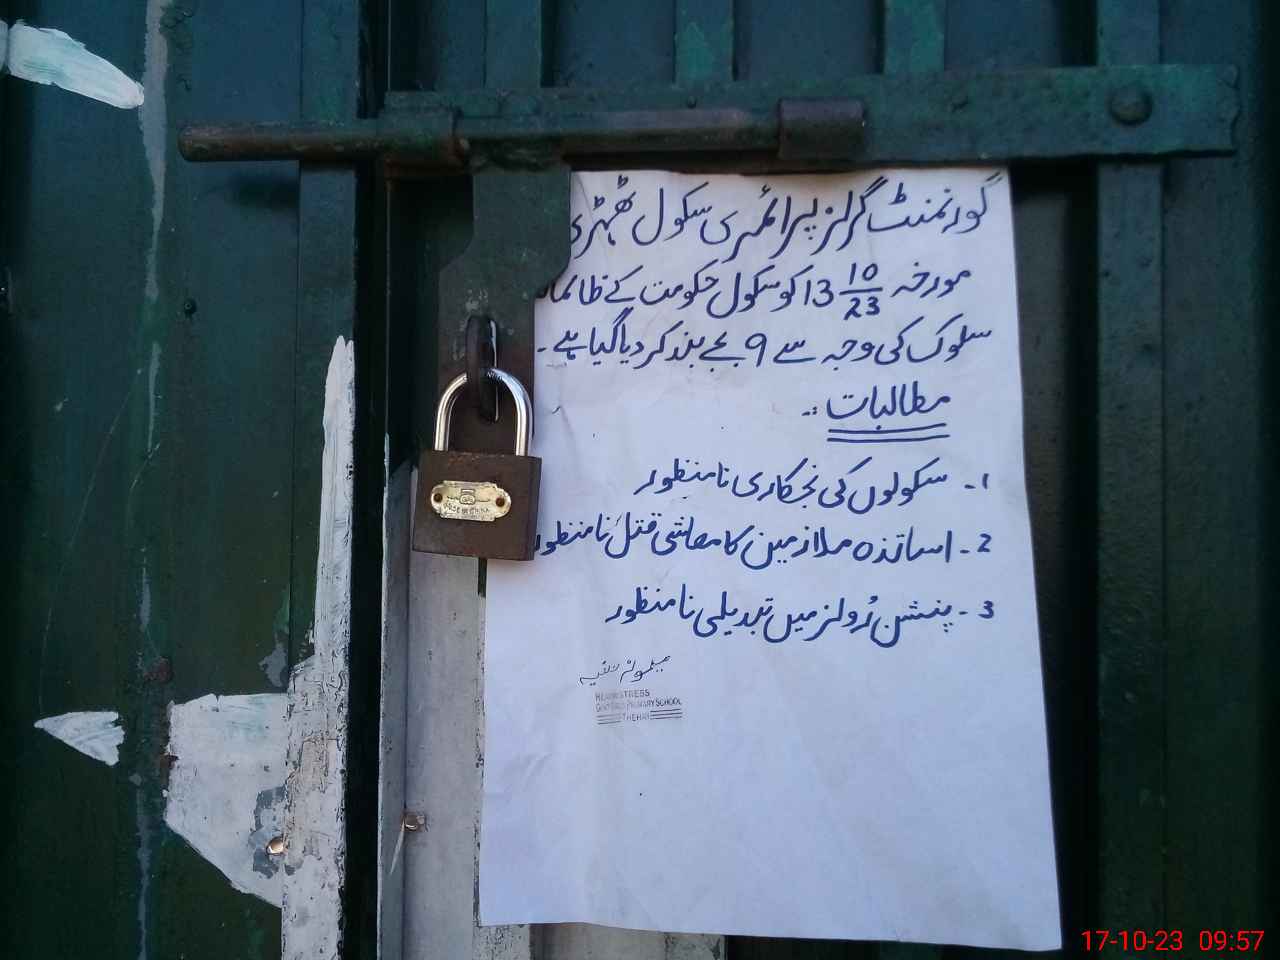 گورنمنٹ گرلز پرائمری سکول ٹھہڑی
مورخہ 13 10/23 کو سکول حکومت کے ظالمانہ
سلوک کی وجہ سے 9 بجے بند کر دیا گیا ہے۔
مطالبات :۔
1۔ سکولوں کی نجکاری نامنظور
2۔ اساتذہ ملازمین کا معاشی قتل نامنظور
3۔ پنشن رُولز میں تبدیلی نامنظور
HEADMISTRESS
GOVT GIRLS PRIMARY SCHOOL
THEHRI
17-10-23 09:57